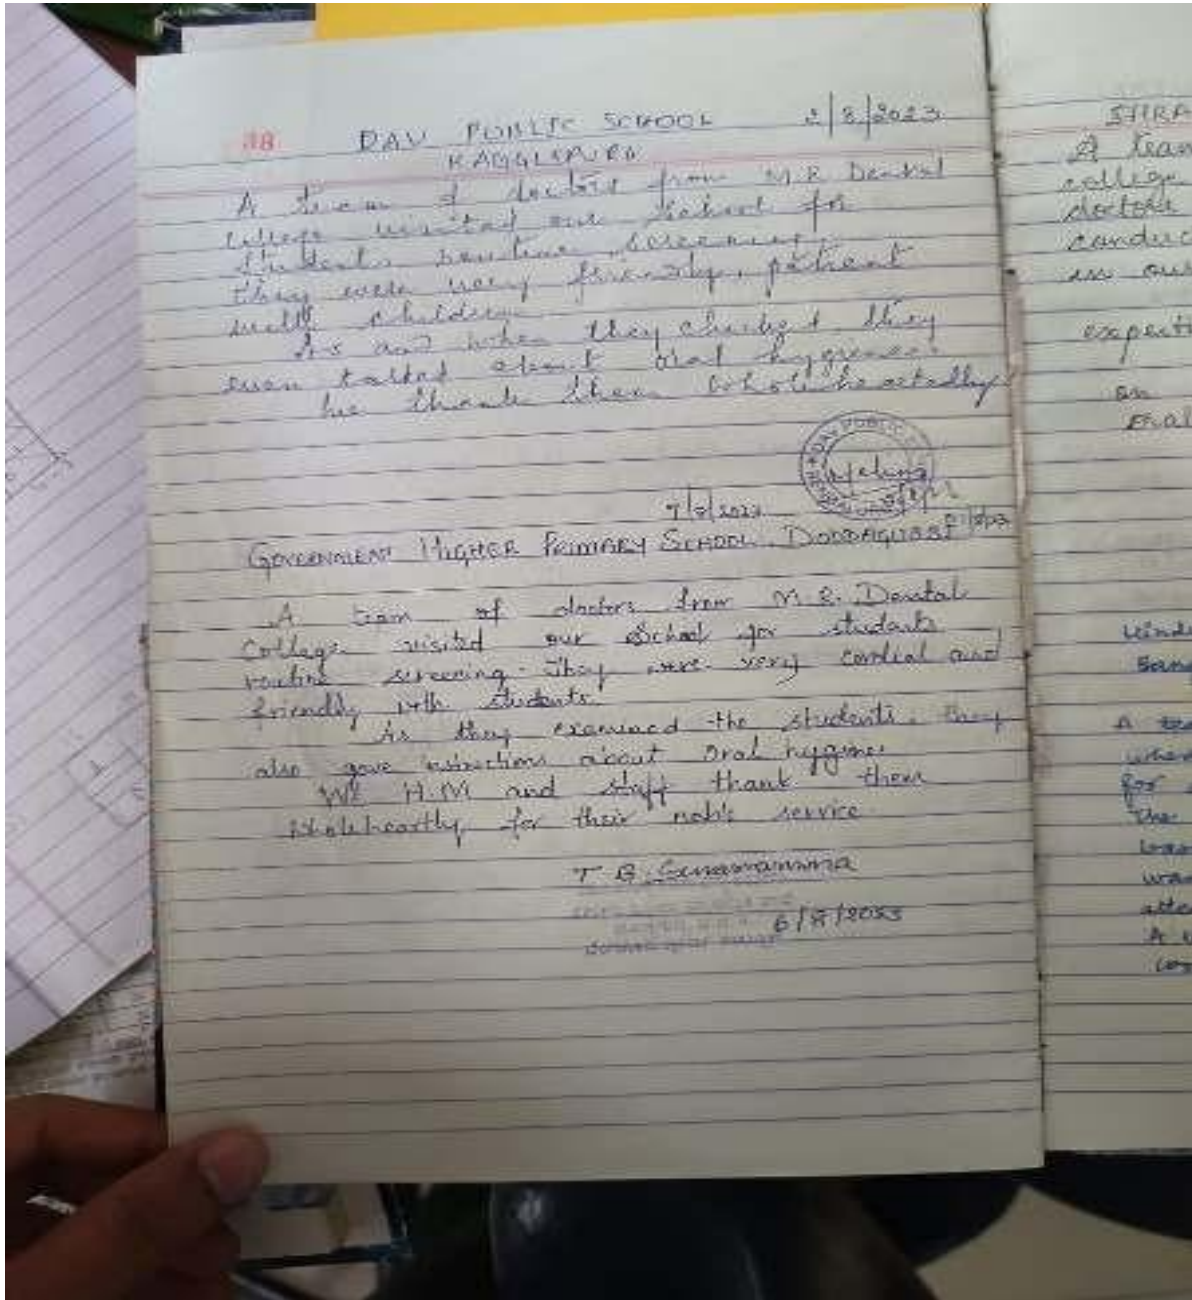 38 DAV PUBLIC SCHOOL 2/8/2023
KAGGLIPURA
A team of doctors from M.R Dental
college visited our school for
students routine screening.
they were very friendly, patient
with children
As and when they checked they
even talked about oral hygiene.
We thank them wholeheartedly
DAV PUBLIC
7/8/2023
GOVERNMENT HIGHER PRIMARY SCHOOL, DODDAGUBBI
A team of doctors from M.R. Dental
College visited our School for students
routine screening. They were very cordial and
friendly with students.
As they examined the students. they
also gave instructions about oral hygine.
We H.M and staff thank them
wholeheartly for their noble service
T B
6/8/2023
A team
college
doctors
conduc
in our
on
A
for
The
was
A